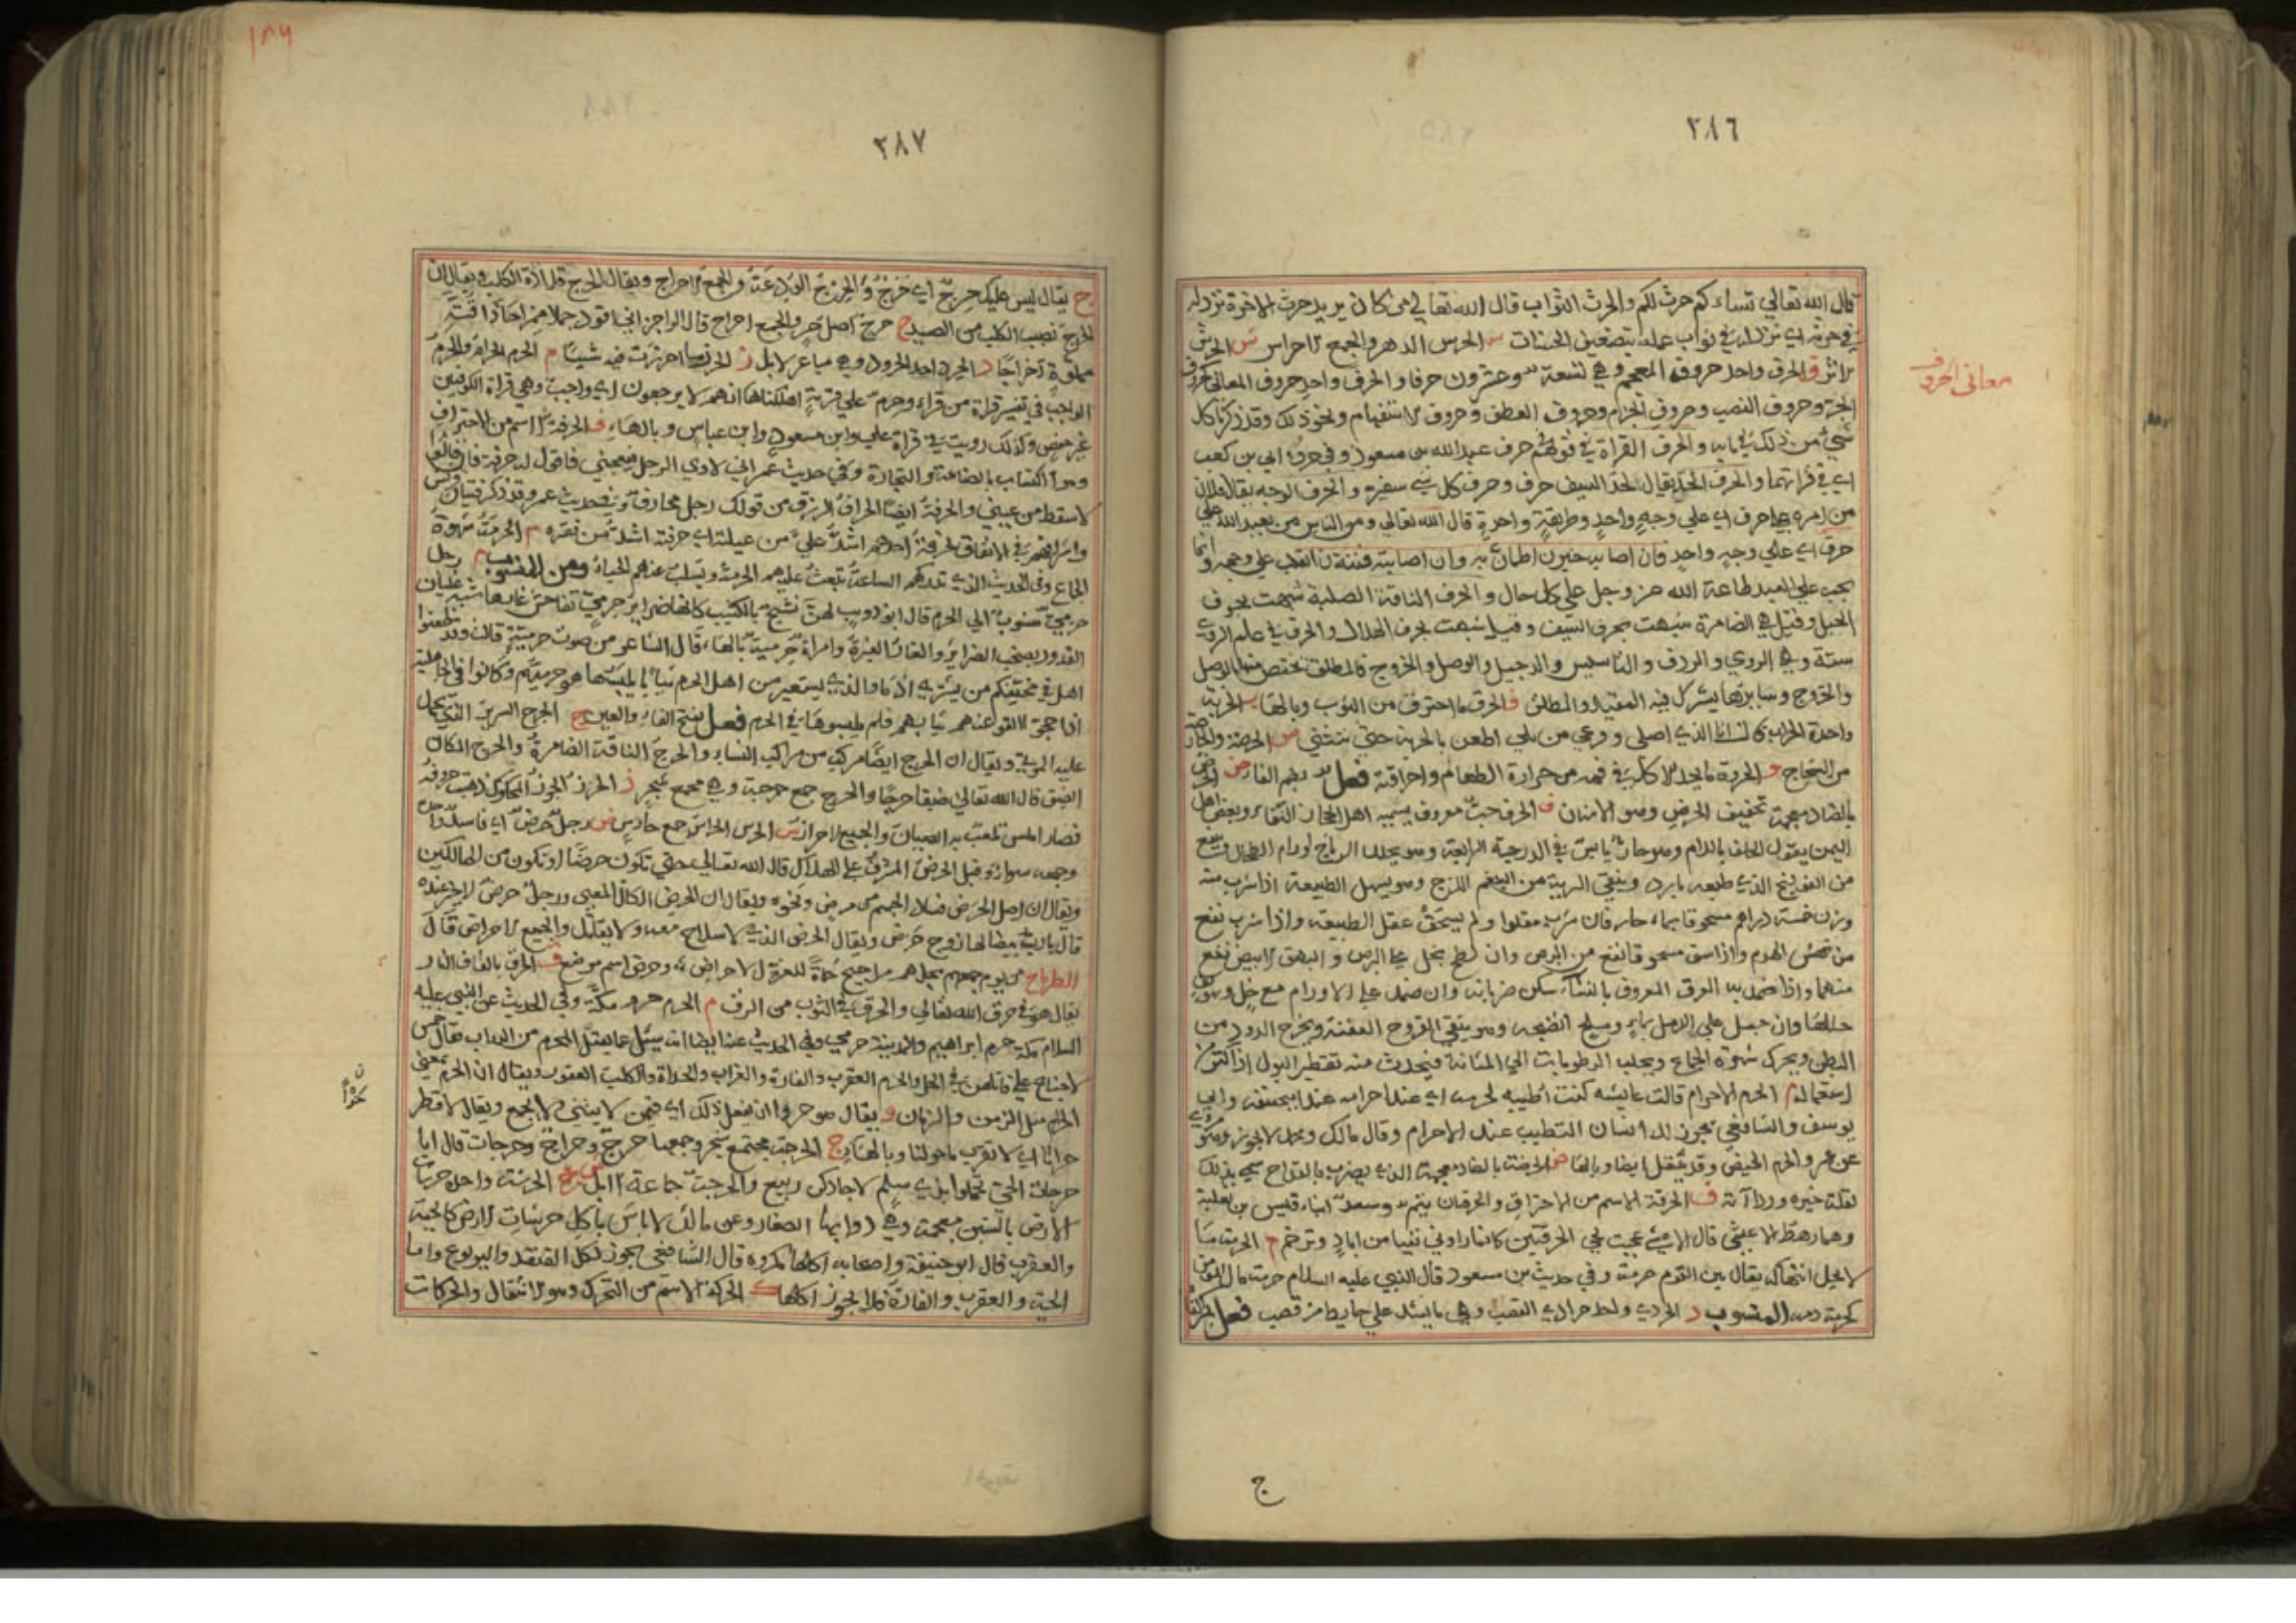 ٢٨٦
قال الله تعالي نساءكم حرث لكم والحرث الثواب قال الله تعالي من كان يريد حرث الاخرة نزد له
في حرثه اي نزد له في ثواب عمله بتضعيف الحسنات س الحرس الدهر والجمع الاحراس ش الحرش
الاثر ف الحرف واحد حروف المعجم وهي تسعة وعشرون حرفا والحرف واحد حروف المعاني كحروف
معاني الحروف
الجر وحروف النصب وحروف الجزم وحروف العطف وحروف الاستفهام ونحو ذلك وقد ذكرنا كل
شيء من ذلك في بابه والحرف القراة في قولهم في حرف عبدالله بن مسعود وفي حرف ابي بن كعب
اي في قراتهما والحرف الحد يقال لحد السيف حرف وحرف كل شيء شفيره والحرف الوجه يقال فلان
من امره علي حرف اي علي وجه واحد وطريقة واحدة قال الله تعالي ومن الناس من يعبد الله علي
حرف اي علي وجه واحد فان اصابه خير ن اطمان به وان اصابته فتنة ن انقلب علي وجهه وانما
يجب علي العبد طاعة الله عز وجل علي كل حال والحرف الناقة الصلبة شبهت بحرف
الجبل وقيل هي الضامرة شبهت بحرف السيف وقيل شبهت بحرف الهلال والحرف في علم الروي
ستة وهي الروي والردف والتاسيس والدخيل والوصل والخروج فالمطلق يختص منها بالوصل
والخروج وسايرها يشترك فيه المقيد والمطلق ق الحرق ما احترق من الثوب وبالهاء ب الحربة
واحدة الحراب
من الشجاج و الحروة ما يجد الاكل في فمه من حرارة الطعام واحراقه فعل بضم الفاء ض الحرض
بالضاد معجمة تخفيف الحرض وهو الاشنان ف الحرف حب معروف يسميه اهل الحجاز الثفاء وبعض اهل
اليمن يقول الحلف باللام وهو حار يابس في الدرجة الرابعة وهو يحلل الرياح اورام الطحال
من البلغم اللزج وهو يسهل الطبيعة اذا شرب منه
وزن خمسة دراهم مسحوقا بماء حار فان شرب مقلوا ولم يسحق عقل الطبيعة واذا شرب نفع
من نهش الهوام واذا سف مسحوقا نفع من البرص وان لطخ بخل علي البرص والبهق الابيض نفع
منهما واذا ضمد به العرق المعروف بالنسا سكن ضربانه وان ضمد علي الاورام مع خل وسويق
حللها وان جعل علي الدمل بماء وملح انضجه وهو ينقي القروح العفنة ويخرج الدود من
البطن ويحرك شهوة الجماع ويجلب الرطوبات الي المثانة فيحدث منه تقطير البول اذا اكثر من
استعماله م الحرم الاحرام قالت عايشه كنت اطيبه لحرمه اي عند احرامه عند ابي حنيفة وابي
يوسف والشافعي يجوز للانسان التطيب عند الاحرام وقال مالك ومحمد لا يجوز وهو مروي
عن عمر والحرم الحيض وقد يثقل ايضا وبالهاء ض الحرضة بالضاد معجمة الذي يضرب بالقداح سمي بذلك
لقلة خيره ورداءته ق الحرقة الاسم من الاحتراق والحرقان تيم وسعد ابناء قيس بن ثعلبة
وهما رهط الاعشي قال الاعشي عجبت لحي الحرقتين كانما راوني نفيا من اياد وترخم م الحرمة ما
لا يحل انتهاكه يقال بين القوم حرمة وفي حديث بن مسعود قال النبي عليه السلام حرمة مال المؤمن
كحرمة دمه المنسوب د الحردي واحد حرادي القصب وهي ما يشد علي حايط من قصب فعل بكسر الفاء
ج
٢٨٧
١٨٦
ج يقال ليس عليك حرج اي حرج والحرج الودعة والجمع الاحراج ويقال الحرج قلادة الكلب ويقال ان
الحرج نصيب الكلب من الصيد ح حرح اصل حر والجمع احراح قال الراجز اني اقود جملا ممراحا ذا قبة
مملوة احراحا د الحرد احد الحرود وهي مباعر الابل ز الحرز ما احرزت فيه شيئا م الحرم الحرام والحرم
الواجب في تفسير قراة من قراء وحرم علي قرية اهلكناها انهم لا يرجعون اي واجب وهي قراة الكوفيين
غير حفص وكذلك رويت في قراة علي وابن مسعود وابن عباس وبالهاء ف الحرفة الاسم من الاحتراف
وهو الاكتساب بالصناعة والتجارة وفي حديث عمر اني لاري الرجل يعجبني فاقول له حرفة فان قالوا
لا سقط من عيني والحرفة ايضا الحراف الرزق من قولك رجل محارف وفي حديث عمر وقد ذكر فتيان قريش
واسرافهم في الانفاق لحرفة احدهم اشد علي من عيلته اي حرفته اشد من فقره م الحرمة شهوة
الجماع وفي الحديث الذين تدركهم الساعة تبعث عليهم الحرمة ويسلب عنهم الحياء ومن المنسوب م رجل
حرمي منسوب الي الحرم قال ابو ذويب لهن نشيج بالكثيب كانها ضراير حرمي تفاحش غارها شبه غليان
القدور بصخب الضراير والغار الغيرة وامراة حرمية بالهاء قال الشاعر من صوت حرمية قالت وقد ظعنوا
هل في مخفيكم من يشتري ادما والذي يستعير من اهل الحرم ثيابا يلبسها هو حرميهم وكانوا في الجاهلية
اذا حجوا القوا عنهم ثيابهم فلم يلبسوها في الحرم فعل بفتح الفاء والعين ج الحرج السرير الذي يحمل
عليه الموتي ويقال ان الحرج ايضا مركب من مراكب النساء والحرج الناقة الضامرة والحرج المكان
الضيق قال الله تعالي ضيقا حرجا والحرج جمع حرجة وهي مجمع شجر ز الحرز الجوز المحكوك ذهبت حروفه
فصار املس تلعب به الصبيان والجميع الاحراز س الحرس الحراس جمع حارس ض رجل حرض اي فاسد واحده
وجمعه سواء وقيل الحرض المشرف علي الهلاك قال الله تعالي حتي تكون حرضا او تكون من الهالكين
ويقال ان اصل الحرض فساد الجسم من مرض ونحوه ويقال ان الحرض الكال المعيي ورجل حرض لا خير عنده
قال يا رب بيضا لها زوج حرض ويقال الحرض الذي لا سلاح معه ولا يقاتل والجميع الاحراض قال
الطرماح من يرم جمعهم يجدهم مراجيح حماة للعزل الاحراض وحرض اسم موضع ق الحرق بالقاف النار
يقال هو في حرق الله تعالي والحرق في الثوب من الدق م الحرم حرم مكة وفي الحديث عن النبي عليه
السلام مكة حرم ابراهيم والمدينة حرمي وفي الحديث عنه ايضا انه سيل عما يقتل المحرم من الدواب فقال خمس
لا جناح علي قاتلهن في الحل والحرم العقرب والفارة والغراب والحداة والكلب العقور ويقال ان الحرم بمعني
الحرام مثل الزمن والزمان و يقال هو حرا ان يفعل ذلك اي قمن لا يثني ولا يجمع ويقال لا تطر
حرانا اي لا تقرب ما حولنا وبالهاء ج الحرجة مجتمع شجر وجمعها حرج وحراج وحرجات قال ايا
حرجات الحي تحملوا بذي سلم لا جادكن ربيع والحرجة جماعة الابل ش الحرشة واحدة حرشات
الارض بالشين معجمة وهي دوابها الصغار وعن مالك لا باس باكل حرشات الارض كالحية
والعقرب قال ابو حنيفة واصحابه اكلها مكروه قال الشافعي يجوز اكل القنفد واليربوع واما
الحية والعقرب والفارة فلا يجوز اكلها ك الحركة الاسم من التحرك وهو الانتقال والحركات